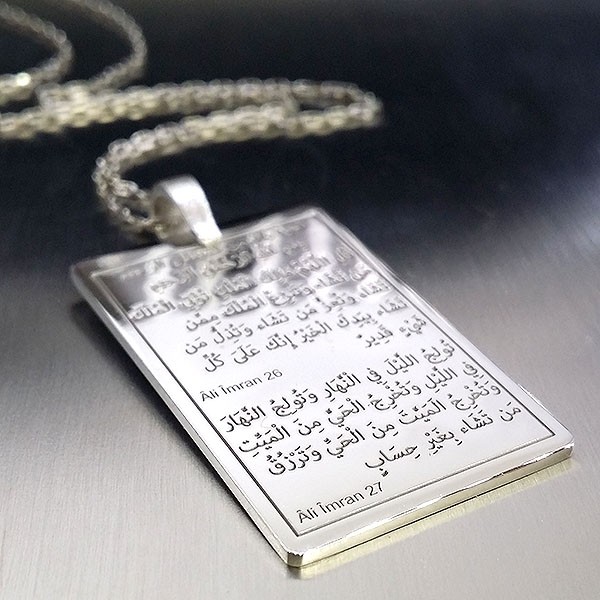 قُلِ اللَّهُمَّ مَالِكَ الْمُلْكِ تُؤْتِي الْمُلْكَ
مَن تَشَاء وَتَنزِعُ الْمُلْكَ مِمَّن
تَشَاء وَتُعِزُّ مَن تَشَاء وَتُذِلُّ مَن
تَشَاء بِيَدِكَ الْخَيْرُ إِنَّكَ عَلَىَ كُلِّ
شَيْءٍ قَدِيرٌ
Âli İmran 26
تُولِجُ اللَّيْلَ فِي الْنَّهَارِ وَتُولِجُ النَّهَارَ
فِي اللَّيْلِ وَتُخْرِجُ الْحَيَّ مِنَ الْمَيِّتِ
وَتُخْرِجُ الَمَيَّتَ مِنَ الْحَيِّ وَتَرْزُقُ
مَن تَشَاء بِغَيْرِ حِسَابٍ
Âli İmran 27